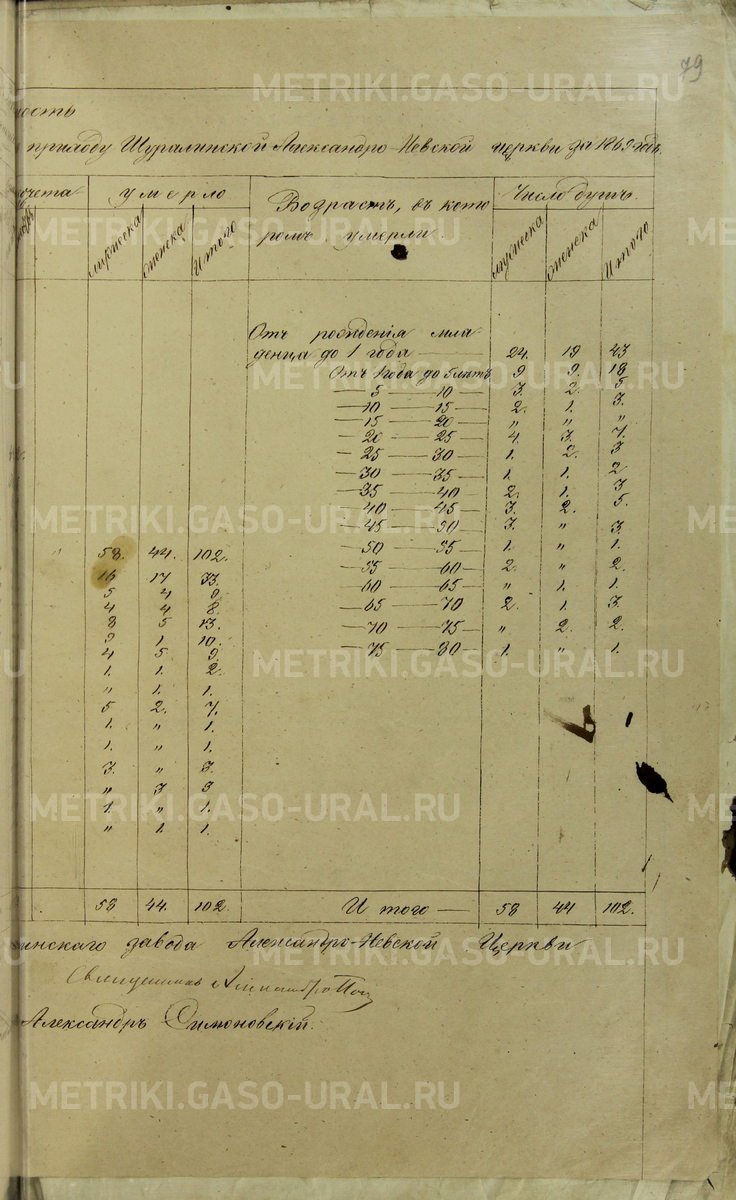 79
ость
приходу Шуралинской Александро-Невской церкви за 1869 годъ.
счета
умерло
Возрастъ, въ кото
ромъ умерли.
Число душъ.
мужеска
женска
Итого
мужеска
женска
Итого
Отъ рожденія мла-
денца до 1 года — 24. 19 43
Отъ 1 года до 5 лѣтъ 9 9. 18
— 5 — 10 — 3. 2. 5
— 10 — 15 — 2. 1. 3.
— 15 — 20 — " " "
— 20 — 25 — 4. 3. 7.
— 25 — 30 — 1. 2. 3
— 30 — 35 — 1. 1. 2
— 35 — 40 — 2. 1. 3
— 40 — 45 — 3. 2. 5.
— 45 — 50 — 3. " 3.
— 50 — 55 — 1. " 1.
— 55 — 60 — 2. " 2.
— 60 — 65 — " 1. 1.
— 65 — 70 2. 1. 3.
— 70 — 75 — " 2. 2.
— 75 — 80 — 1. " 1.
" 58. 44. 102.
16 17 33.
5 4 9
4 4 8.
8 5 13.
9 1. 10.
4 5 9
1. 1. 2.
" 1. 1.
5 2. 7.
1. " 1.
1. " 1.
3. " 3.
" 3 3
1. " 1.
" 1. 1.
58 44. 102.
Итого — 58 44 102.
инскаго завода Александро-Невской Церкви
Священникъ
Александръ Симоновскій.
METRIKI.GASO-URAL.RU